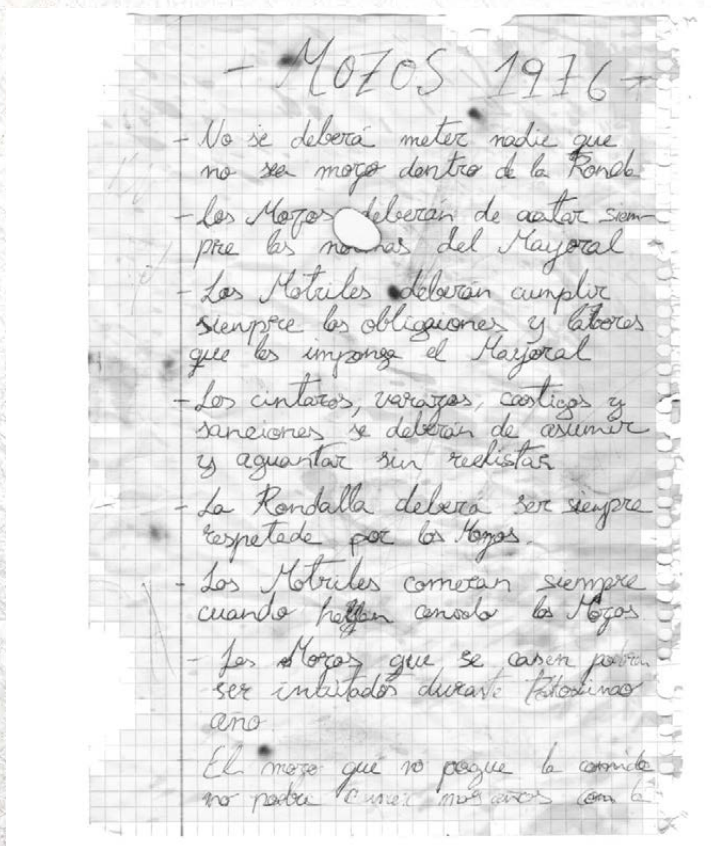 - MOZOS 1976 -
- No se deberá meter nadie que
no sea mozo dentro de la Ronda
- Los Mozos deberán de acatar siem-
pre las normas del Mayoral
- Los Motriles deberán cumplir
siempre las obligaciones y labores
que les imponga el Mayoral
- Los cintazos, varazos, castigos y
sanciones se deberán de asumir
y aguantar sin rechistar
- La Rondalla deberá ser siempre
respetada por los Mozos.
- Los Motriles comeran siempre
cuando hayan cenado los Mozos.
- Los Mozos que se casen podran
ser invitados durante
año.
El mozo que no pague la comida
no podra mas con la